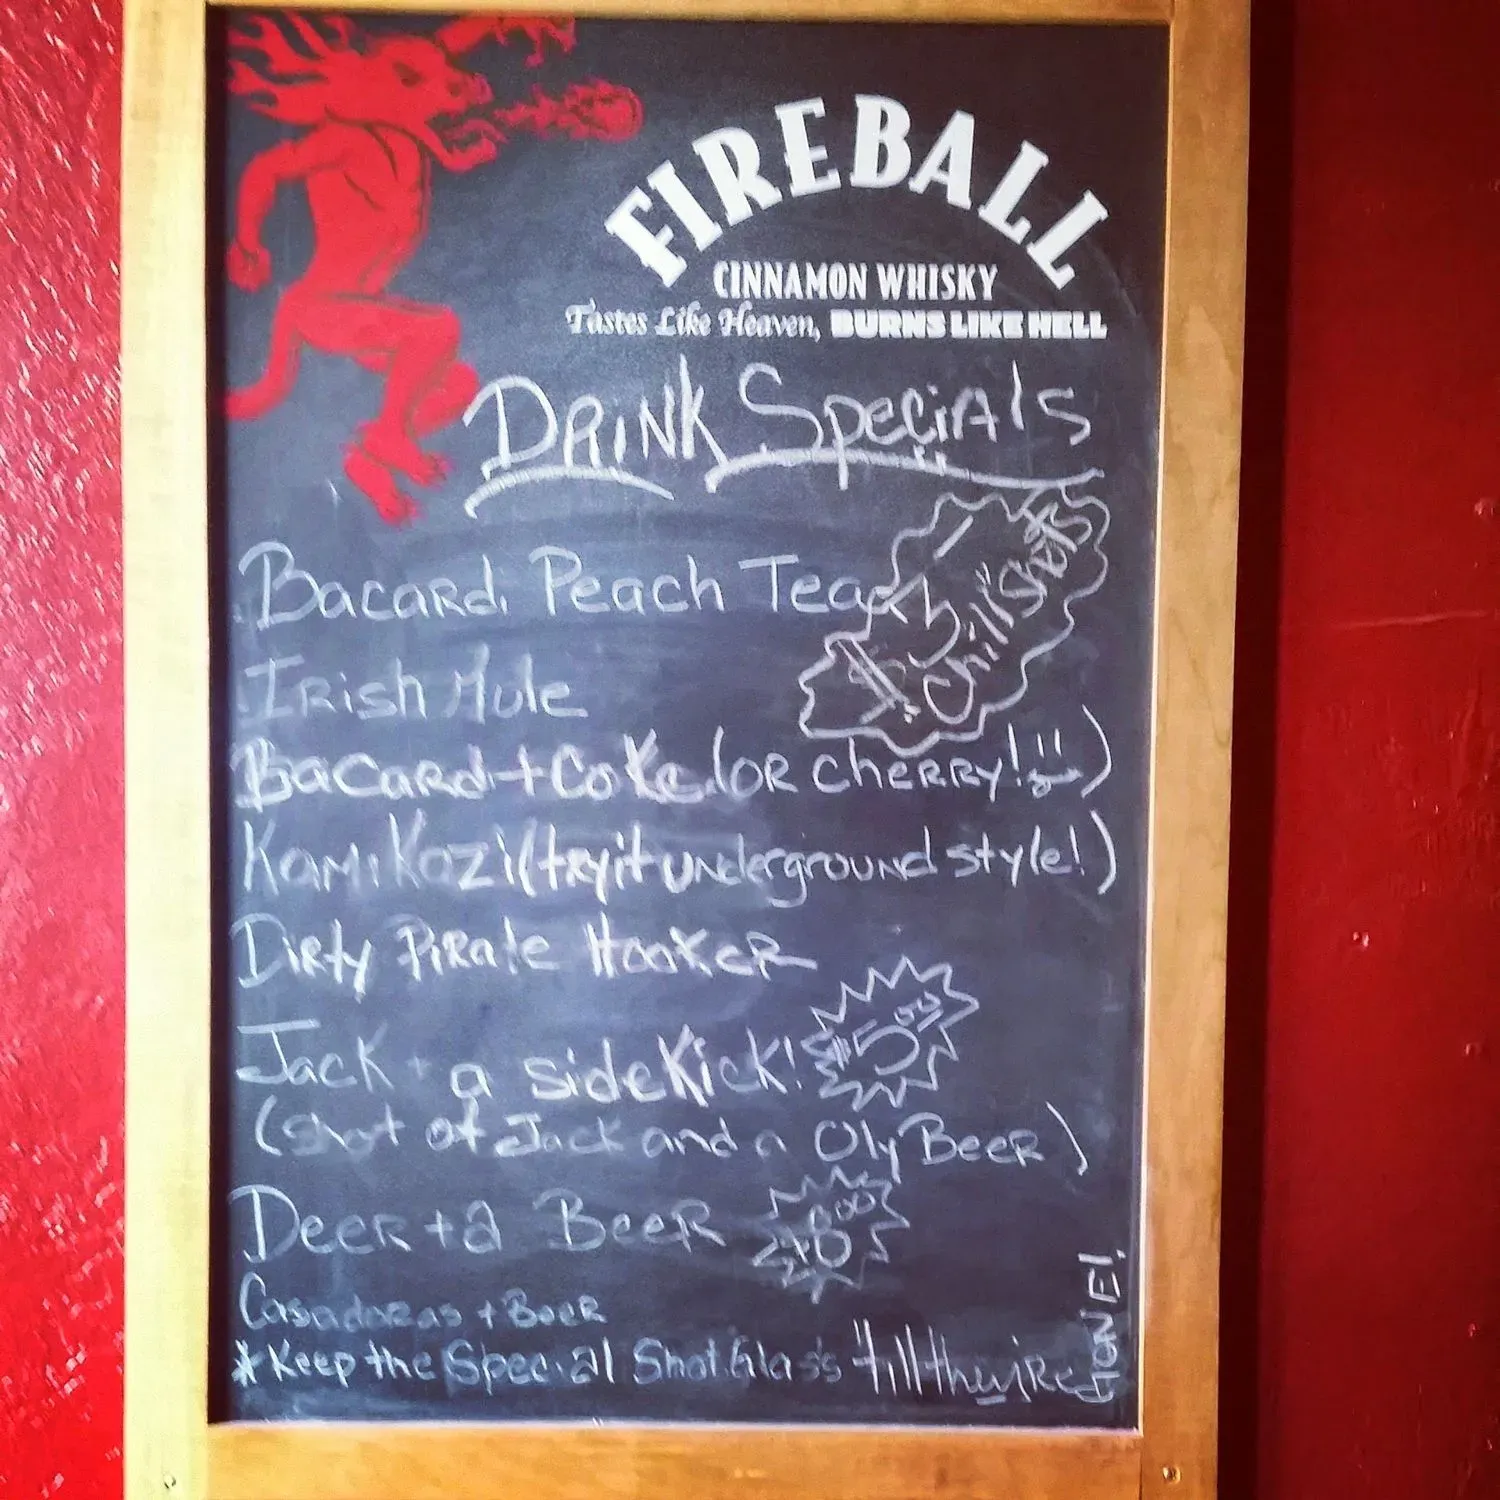 FIREBALL
CINNAMON WHISKY
Tastes Like Heaven, BURNS LIKE HELL
DRINK SpeciAls
Bacardi Peach Tea
Chill Shots
Irish Mule
Bacardi + Coke (OR CHERRY! )
KamiKazi (try it underground style!)
Dirty Pirate HOOKER
Jack + a sideKick! $5
(shot of Jack and a Oly BEER)
DEER + a BEER
Casadores + Beer
* Keep the Special Shot Glass 'till they're GONE!